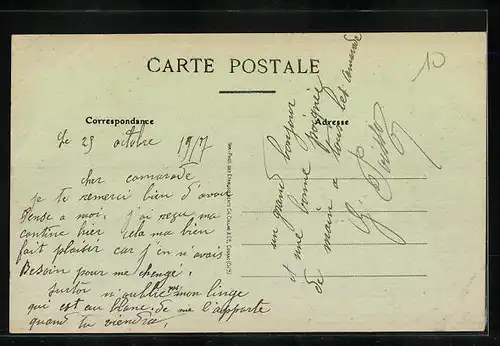 CARTE POSTALE
10
Correspondance
Adresse
Le 25 octobre 1917
cher camarade
je te remerci bien d'avoir
Pense a moi. j'ai reçu ma
cantine hier cela ma bien
fait plaisir car j'en n'avais
Besoin pour me changé.
surtor n'oublie mon linge
qui est au blanc. de me l'apporté
quand tu viendra.
un grand bonjour
et une bonne poignée
de main a tous les camarade
G.